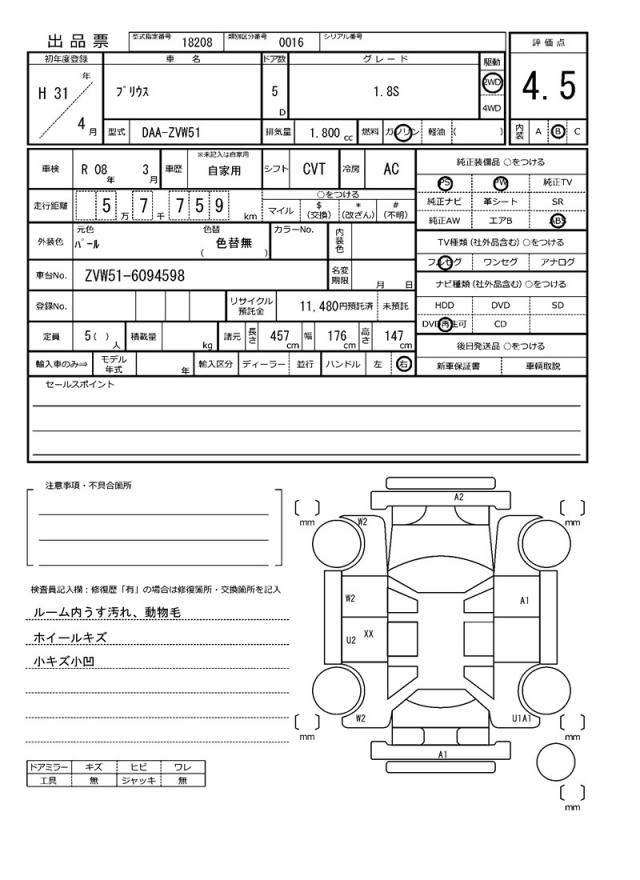 出品票 型式指定番号 18208 類別区分番号 0016 シリアル番号
評価点
4.5
内装 A B C
初年度登録 車名 ドア数 グレード 駆動
H 31 年 4 月 ﾌﾟﾘｳｽ 5 D 1.8S 2WD 4WD
型式 DAA-ZVW51 排気量 1.800 cc 燃料 ガソリン 軽油 ( )
車検 R 08 年 3 月 車歴 ※未記入は自家用 自家用 シフト CVT 冷房 AC
走行距離 5 万 7 千 7 5 9 km ○をつける
マイル $ (交換) * (改ざん) # (不明)
外装色 元色 ﾊﾟｰﾙ 色替 ( 色替無 ) カラーNo. 内装色
車台No. ZVW51-6094598 名変期限 月 日
登録No. リサイクル預託金 11,480円預託済 未預託
定員 5( ) 人 積載量 kg 諸元 長さ 457 cm 幅 176 cm 高さ 147 cm
輸入車のみ⇨ モデル年式 年 輸入区分 ディーラー 並行 ハンドル 左 右
純正装備品 ○をつける
PS PW 純正TV
純正ナビ 革シート SR
純正AW エアB ABS
TV種類 (社外品含む) ○をつける
フルセグ ワンセグ アナログ
ナビ種類 (社外品含む) ○をつける
HDD DVD SD
DVD再生可 CD
後日発送品 ○をつける
新車保証書 車輌取説
セールスポイント
注意事項・不具合箇所
検査員記入欄：修復歴「有」の場合は修復箇所・交換箇所を記入
ルーム内うす汚れ、動物毛
ホイールキズ
小キズ小凹
ドアミラー キズ ヒビ ワレ
工具 無 ジャッキ 無
A2
mm mm
W2
W2 A1
U2 XX
W2 U1A1
mm mm
A1
mm